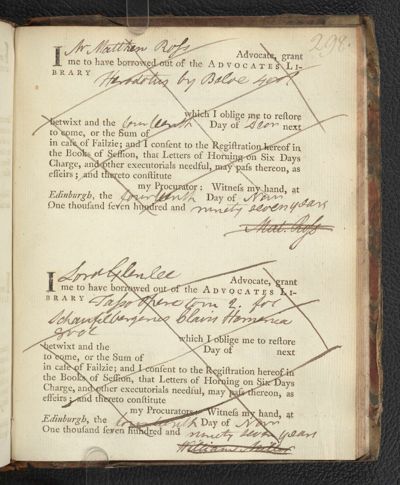 298.
I Mr Matthew Ross Advocate, grant
me to have borrowed out of the ADVOCATES LI-
BRARY Herodotus by Beloe 4 vol.
which I oblige me to reſtore
betwixt and the fourteenth Day of Decr next
to come, or the Sum of
in caſe of Failzie; and I conſent to the Regiſtration hereof in
the Books of Seſſion, that Letters of Horning on Six Days
Charge, and other executorials needful, may paſs thereon, as
effeirs; and thereto conſtitute
my Procurator: Witneſs my hand, at
Edinburgh, the fourteenth Day of Novr
One thouſand ſeven hundred and ninety seven years
Mat. Ross
I Lord Glenlee Advocate, grant
me to have borrowed out of the ADVOCATES LI-
BRARY Tasso Opere tom 2. for
Schaufelbergerus Clavis Homerica
which I oblige me to reſtore
betwixt and the Day of next
to come, or the Sum of
in caſe of Failzie; and I conſent to the Regiſtration hereof in
the Books of Seſſion, that Letters of Horning on Six Days
Charge, and other executorials needful, may paſs thereon, as
effeirs; and thereto conſtitute
my Procurator: Witneſs my hand, at
Edinburgh, the fourteenth Day of Novr
One thouſand ſeven hundred and ninety seven years
William Miller